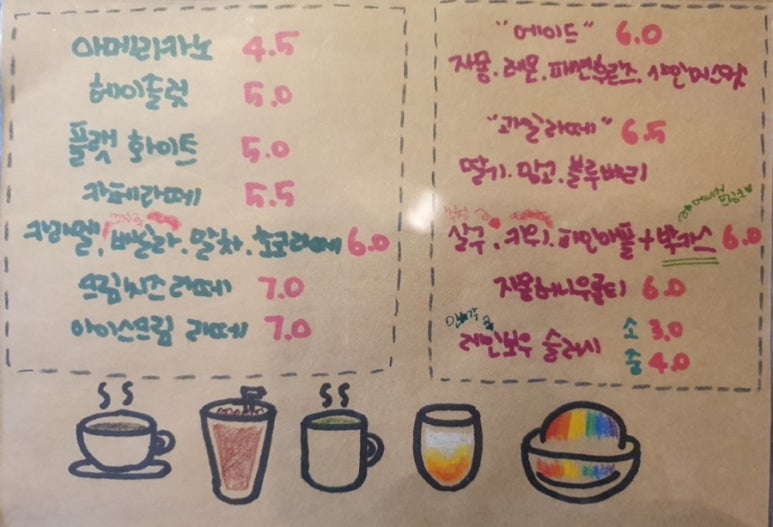 아메리카노 4.5
헤이즐럿 5.0
플랫 화이트 5.0
카페라떼 5.5
카라멜, 바닐라. 말차. 초코라떼 6.0
크림치즈 라떼 7.0
아이스크림 라떼 7.0
"에이드" 6.0
자몽. 레몬. 패션후르츠. 샤인머스캣
"과일라떼" 6.5
딸기. 망고. 블루베리
살구. 키위. 파인애플 + 박카스 6.0
자몽허니우롱티 6.0
레인보우 슬러시 소 3.0
중 4.0